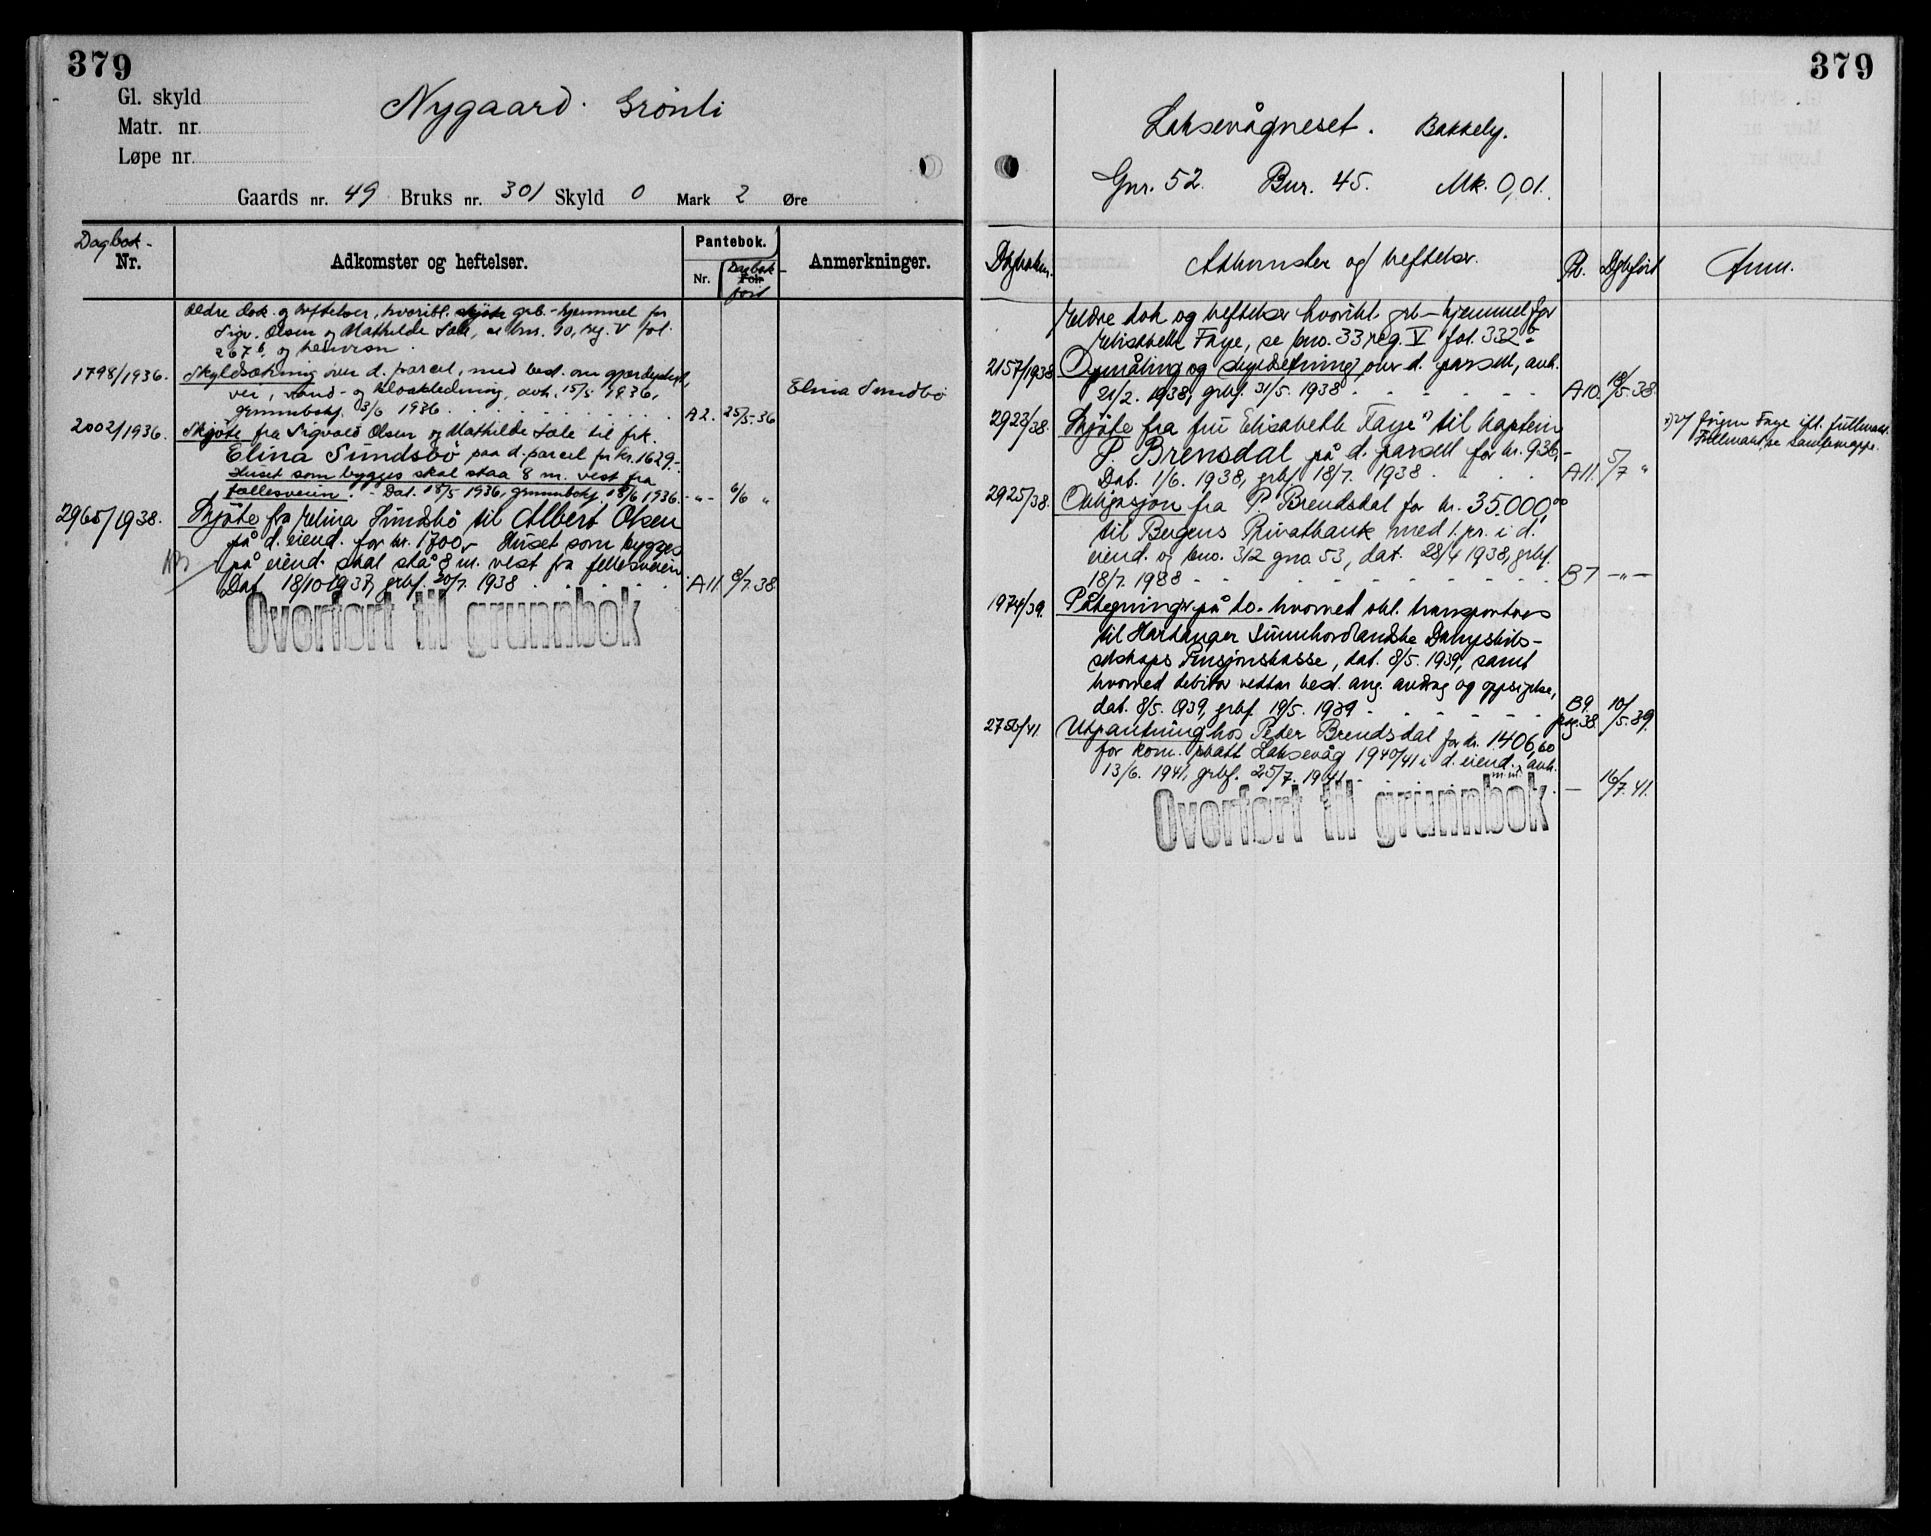 379
Gl. skyld
Matr. nr.
Løpe nr.
Nygaard. Grönli
Gaards nr. 49 Bruks nr. 301 Skyld 0 Mark 2 Øre
Dagbok-
Nr.
Adkomster og heftelser.
Pantebok.
Nr.
Dagbok-
Fol.
ført
Anmerkninger.
Ældre dok. og heftelser, hvoribl. skjöte grb.-hjemmel for
Sigv. Olsen og Mathilde Sale, se bnr. 10, reg. V fol.
267b, og henvisn.
1798/1936. Skyldsætning over d. parcel, med best. om gjærdeplikt,
vei, vand- og kloakledning, avh. 15/5 1936,
grunnbokf. 3/6 1936 A2. 25/5-36
Elina Sundsbö
2002/1936. Skjöte fra Sigvald Olsen og Mathilde Sale til frk.
Elina Sundsbö paa d. parcel for kr. 1629.-
Huset som bygges skal staa 8 m. vest fra
fællesveien. - Dat. 18/5 1936, grunnbokf. 18/6 1936. -"- 6/6 "
2965/1938. Skjöte fra Elina Sundsbö til Albert Olsen
på d. eiend. for kr. 1700,- Huset som bygges
på eiend. skal stå 8 m. vest fra fellesveien.
Dat. 18/10-1937, grbf. 20/7. 1938 A11. 8/7.38
Overført til grunnbok
379
Laksevågneset. Bakkely.
Gnr. 52. Bnr. 45. Mk. 0,01.
Dagboknr.
Adkomster og heftelser.
Pb.
Dgbført
Anm.
Eldre dok og heftelser hvoribl. grb-hjemmel for
Elisabeth Faye, se bno. 33, reg. V fol. 332b
2157/1938 Opmåling og skyldsetning over d. parsell, avh.
21/2. 1938, grbf. 31/5. 1938 A10. 19/5.38.
2923/38. Skjöte fra fru Elisabeth Faye x) til kaptein
P. Brensdal på d. parsell for kr. 936,-
Dat. 1/6. 1938, grbf. 18/7. 1938 A11. 5/7 "
x) v/ Jörgen Faye ifl. fullmakt.
Fullmakt, se samlemappe.
2925/38. Obligasjon fra P. Brendsdal for kr. 35.000,00
til Bergens Privatbank med 1. pr. i d.
eiend. og bno. 312 gno. 53, dat. 28/4 1938, grbf.
18/7. 1938 B7 -"-
1974/39. Påtegninger på do. hvorved obl. transporteres
til Hardanger Sunnhordlandske Dampskibs-
selskaps Pensjonskasse, dat. 8/5. 1939, samt
hvorved debitor vedtar best. ang. avdrag og oppsigelse,
dat. 8/5. 1939, grbf. 19/5. 1939 B9. pag. 38. 10/5.39.
2756/41. Utpantning hos Peder Brendsdal for kr. 1406,60
for kom. skatt Laksevåg 1940/41 i d. eiend. m.m. avh.
13/6. 1941, grbf. 25/7. 1941 — 16/7.41.
Overført til grunnbok